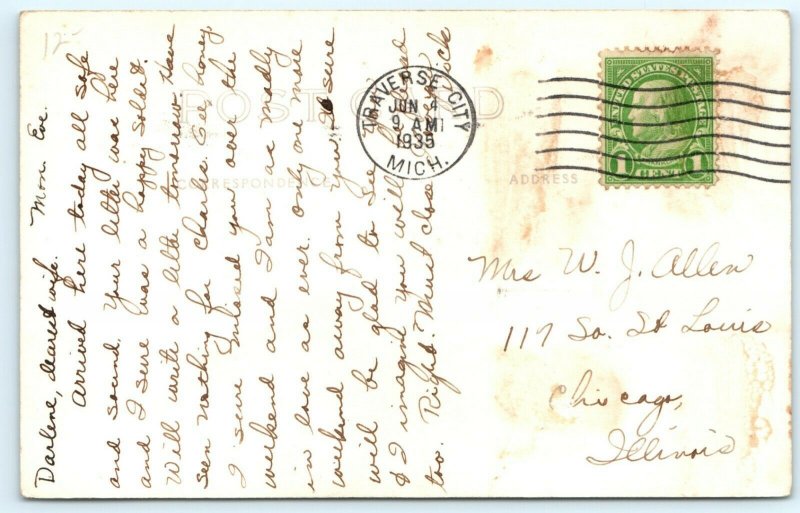 12
POST CARD
CORRESPONDENCE
ADDRESS
TRAVERSE CITY
JUN 4
9 AM
1935
MICH.
UNITED STATES POSTAGE
1 CENT 1
Mon. Eve.
Darlene, dearest wife.
arrived here today all safe
and sound. Your letter was here
and I sure was a happy
Will write a letter tomorrow. Have
seen nothing for Charlie. Gee, honey
I sure missed you over the
weekend and I am as madly
in love as ever. Only one more
weekend away from you. I sure
will be glad to see
& I imagin you will be glad
too. Right. Must close
Mrs W. J. Allen
117 So. St Louis
Chicago,
Illinois